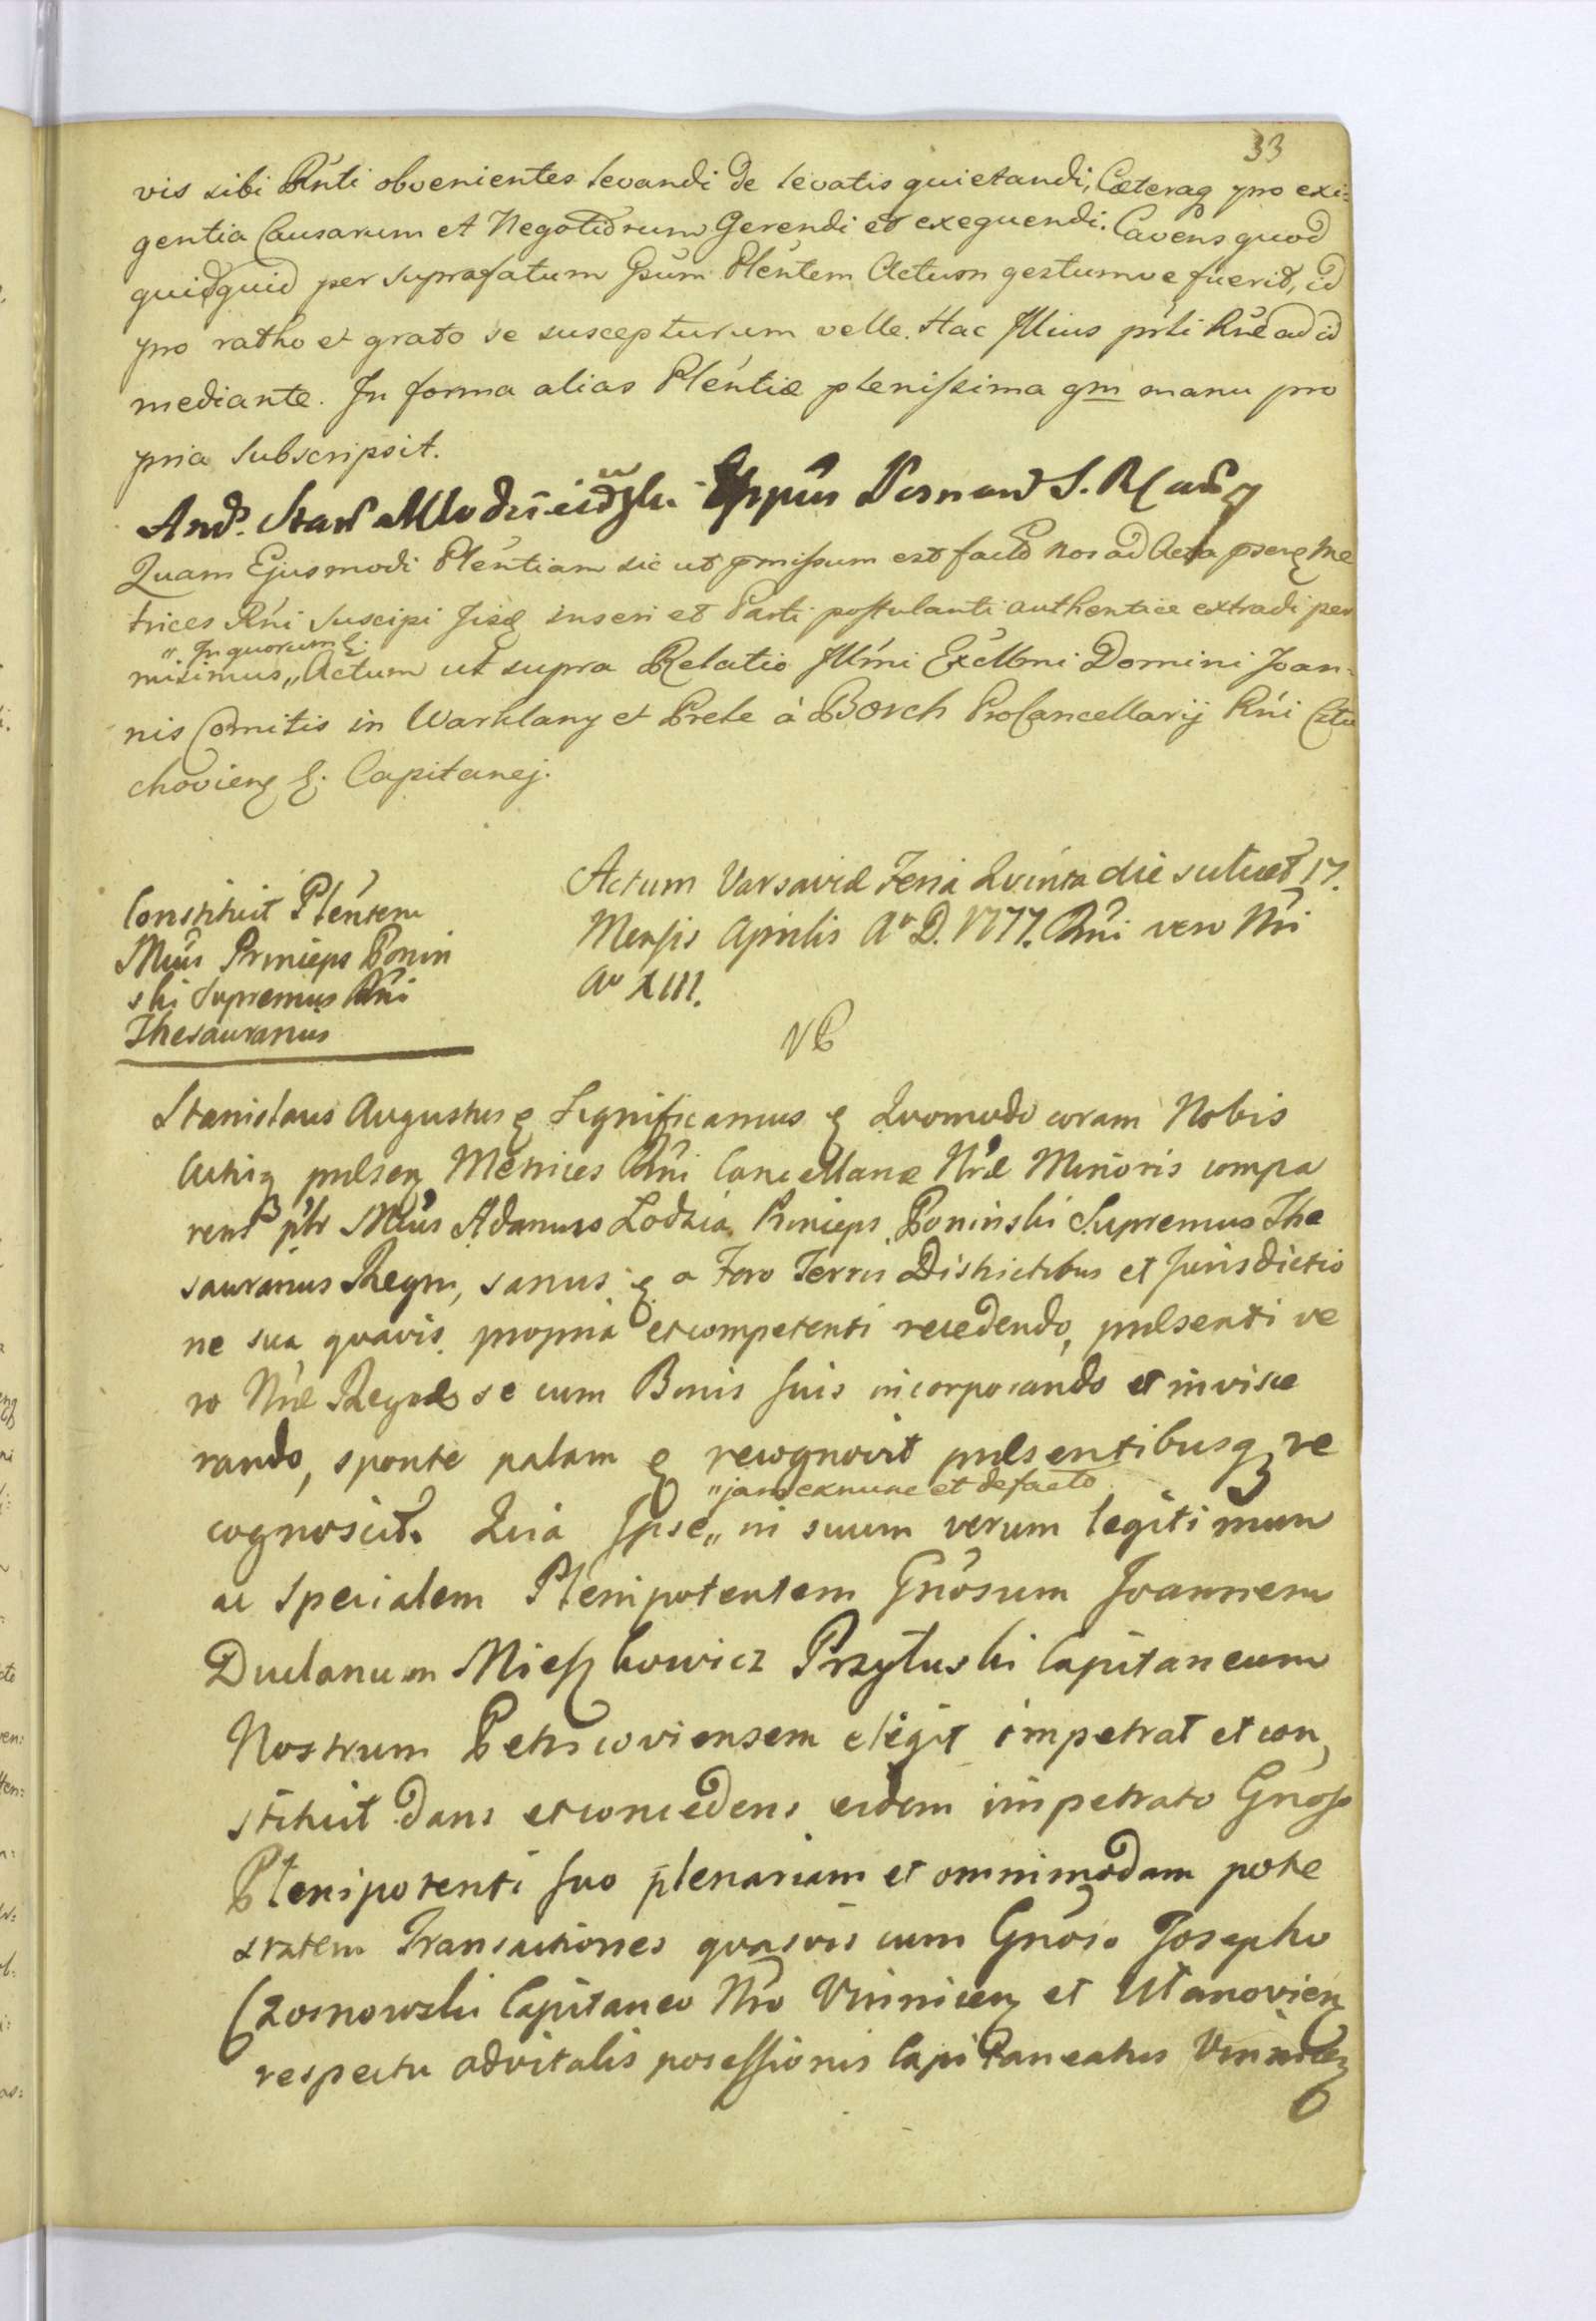 33
vis sibi Rńti obvenientes levandi de levatis quietandi, Cæteraq pro exi=
gentia Causarum et Negotiorum Gerendi et exequendi. Cavens quod
quidquid per suprafatum Gsum Pléntem Actum gestumve fuerit, id
pro ratho et grato se suscepturum velle. Hac Illius pńti Rne ad id
mediante. In forma alias Pléntiæ plenissima qm manu pro
pria subscripsit.
And. Stan Młodzieiowski Eppus Posnan S. R
Quam Ejusmodi Pléntiam sic ut pmissum est facto nos ad Acta psenq Me
trices Rńi Suscipi Jisq inseri et Parti postulanti authentice extradi per
" In quorum &.
misimus,, Actum ut supra Relatio Illmi Excllmi Domini Joan=
nis Comitis in Warklany et Prele à Borch ProCancellarij Rńi Lu
chovienq &. Capitanej.
Constituit Pléntem
Illus Princeps Ponin
ski Supremus Rńi
Thesaurarius
Actum Varsaviæ Feria Quinta die scilicet 17.
Mensis Aprilis Ao D. 1777. Rńi vero Nri
Ao XIII.
Stanislaus Augustus & Significamus & Quomodo coram Nobis
Actisq prælsenq Metrices Rńi Cancellariæ Nræ Minoris compa
rens pltr Illus Adamus Lodzia Princeps Poninski Supremus The
saurarius Regni, sanus & a Foro Terris Districtibus et Jurisdictio
ne sua quavis propria et competenti recedendo, prælsenti ve
ro Nræ Regali se cum Bonis suis incorporando et invisce
rando, sponte palam & recognovit prælsentibusq re
" jam exnunc et de facto
cognoscit. Quia Ipse,, in suum verum legitimum
ac specialem Plenipotentem Gnosum Joannem
Duclanum Mieszkowicz Przyłuski Capitaneum
Nostrum Petricoviensem elegit impetrat et con
stituit dans et concedens eidem impetrato Gnoso
Plenipotenti suo plenariam et omnimodam pote
statem Transactiones quasvis cum Gnoso Josepho
Czosnowski Capitaneo Nro Vinnicenq et Ułanovienq
respectu advitalis possessionis Capitaneatus Vinnicenq